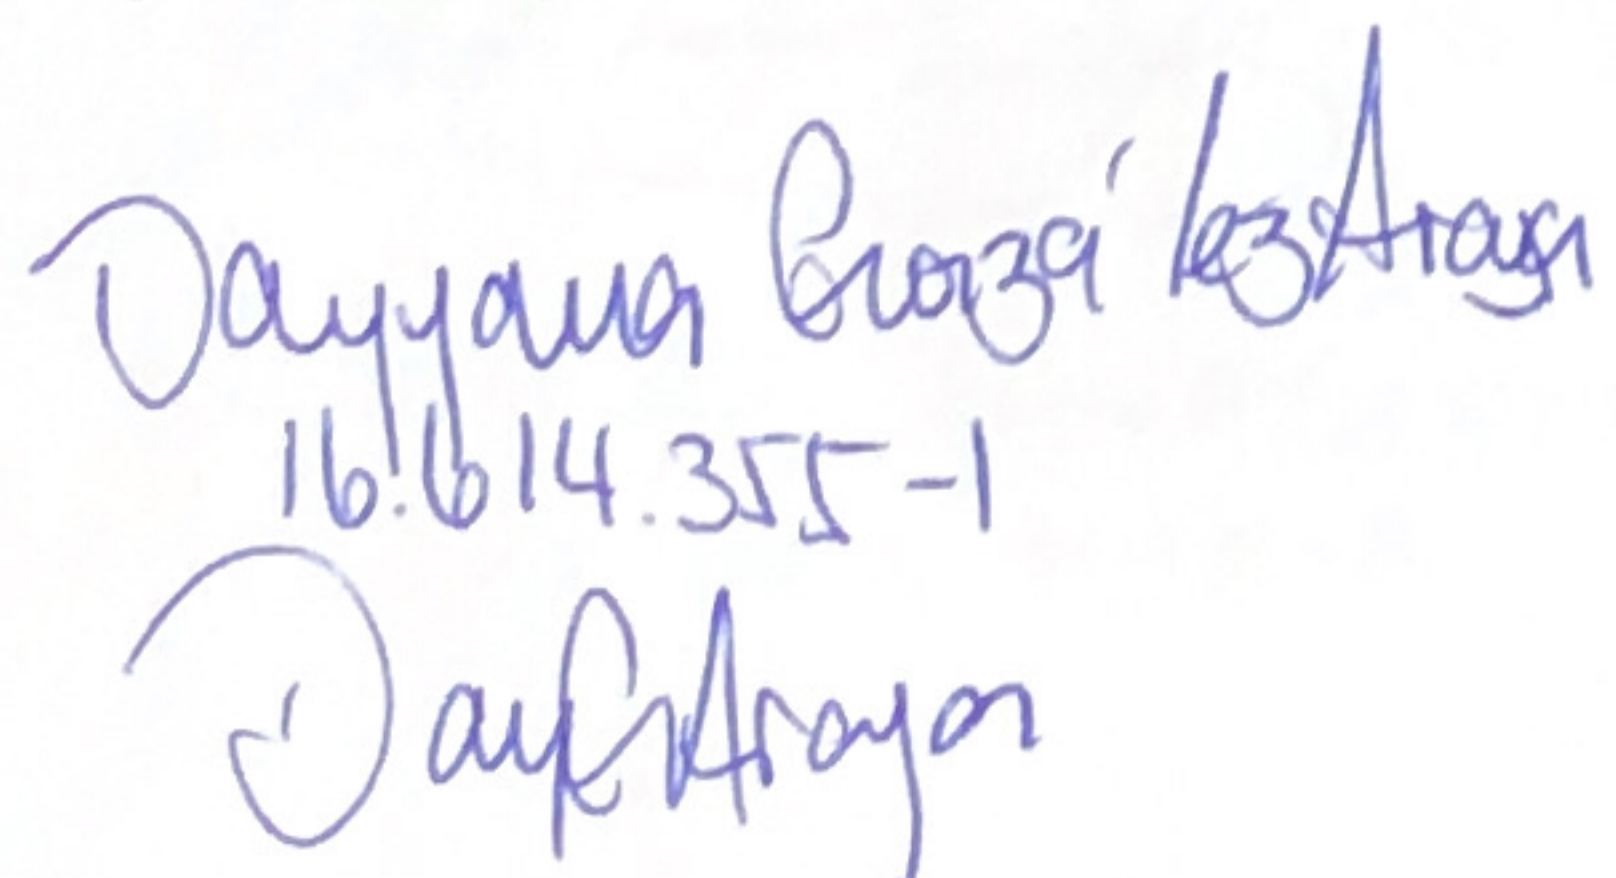 Dayyana González Araya
16.614.355-1
Day G Araya